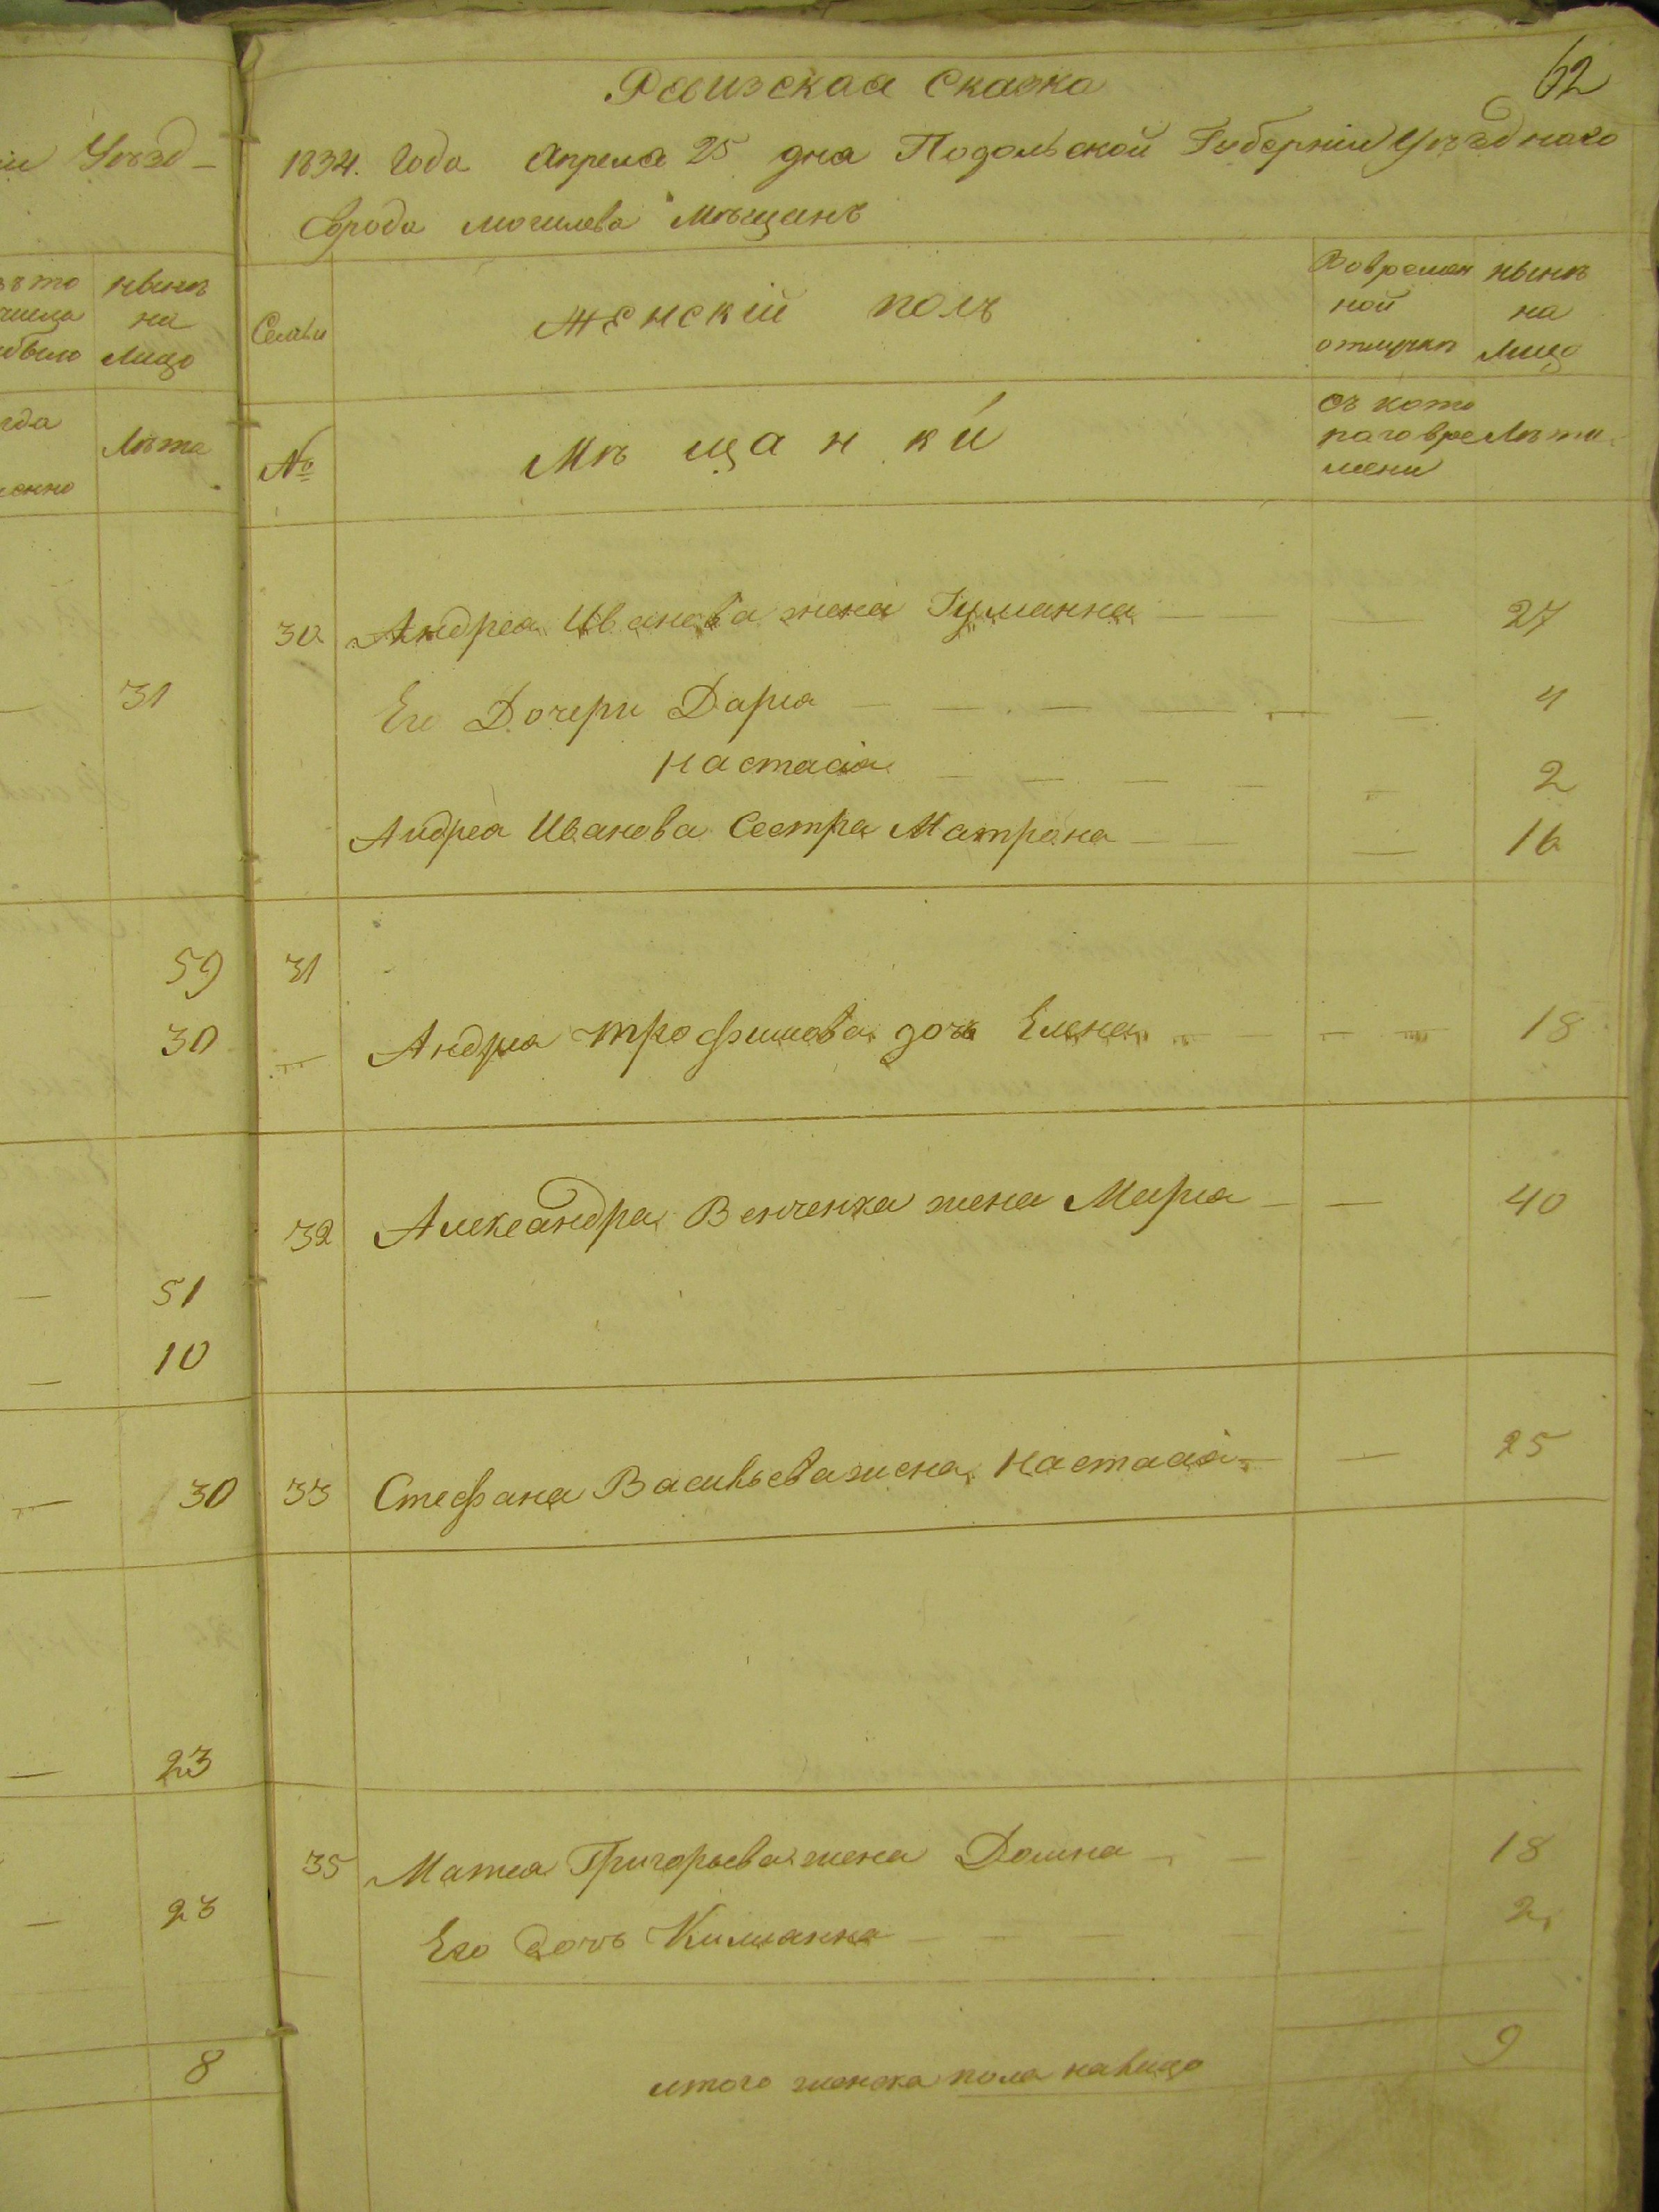 62
Ревизская Сказка
іи Уѣзд-
1834. Года Апреля 25 дня Подольской Губерніи Уѣзднаго
Города Могилева Мѣщанъ
нынѣ
на
Лицо
Лѣта
Семьи
№
ЖЕНСКІЙ ПОЛЪ
Вовремен
ной
отлучкѣ
нынѣ
на
Лицо
Мѣщанки
Съ кото
раго вре
мени
Лѣта
30 Андрея Иванова жена Гуманна — — 27
31
Его Дочери Дарья — — — — — — 4
Настасія — — — — — 2
Андрея Иванова Сестра Матрона — — — 16
59 31
30
— Андрея Трофимова дочь Елена — — — — 18
32 Александра Венченка жена Марья — — 40
— 51
— 10
— 30 33 Стефана Васильева жена Настасія — — 25
— 23
35 Матвя Григорьева жена Домна — — — 18
— 23
Его дочь Килианна — — — — 2
8
итого женска пола налицо 9